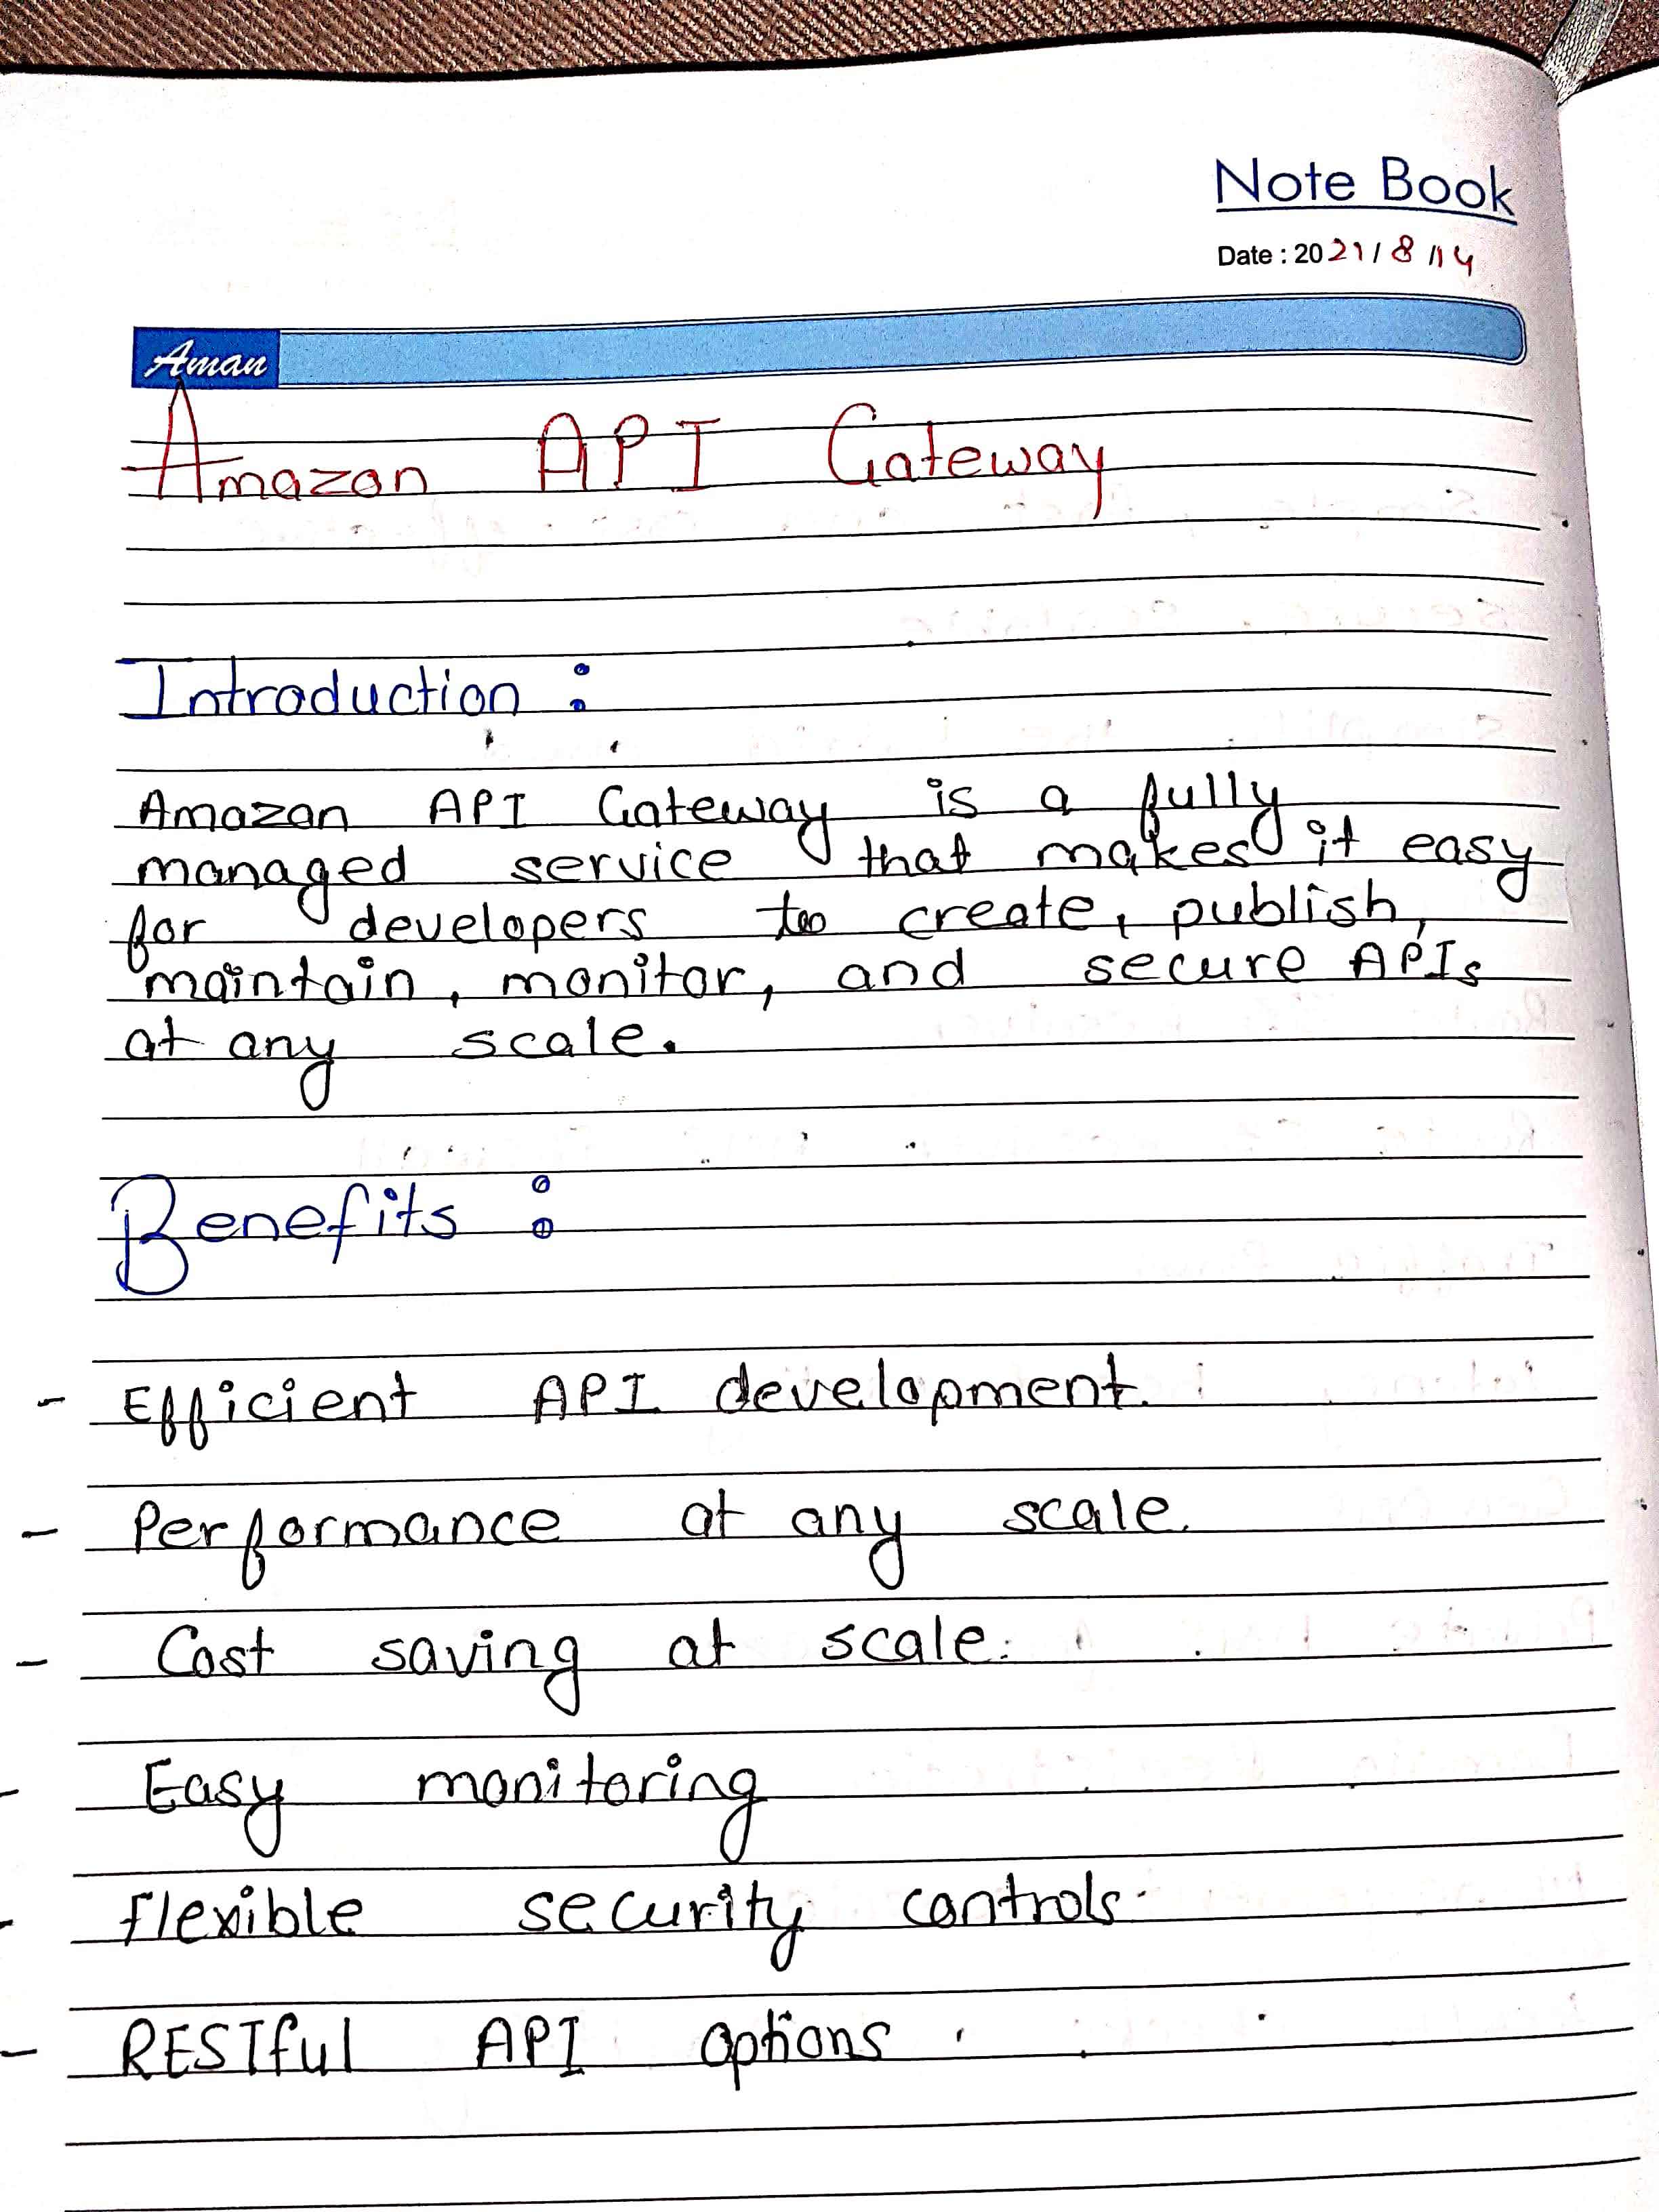 Note Book
Date : 2021/8/14
Aman
Amazon API Gateway
Introduction :
Amazon API Gateway is a fully
managed service that makes it easy
for developers to create, publish,
maintain, monitor, and secure APIs
at any scale.
Benefits :
- Efficient API development.
- Performance at any scale.
- Cost saving at scale.
- Easy monitoring
- flexible security controls.
- RESTful API options.